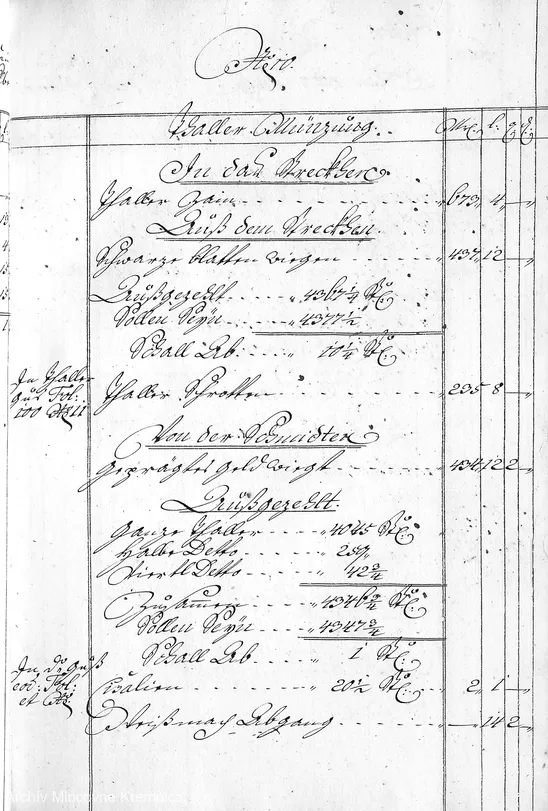 No 10.
Thaller Müntzung. Mr: l: q: d:
In das Streckhen
Thaller Zain - - - 673, 4, —
Auß dem Streckhen
Schwarze blatten wiegen - - - 437, 12 —
Außgezehlt - - - 4367 1/4 St:
Sollen Seyn - - - 4377 1/2
Schall Ab - - - 10 1/4 St:
In Thaller
guß Fol:
100 No 11
Thaller Schrotten - - - 235 8 —
Von der Schmidten
Geprägtes Geld wiegt - - - 434, 12 2
Außgezehlt.
Ganze Thaller - - - 4045 St:
Halbe Detto - - - 259
Viertl Detto - - - 42 3/4
Zusammen - - - 4346 3/4 St:
Sollen Seyn - - - 4347 3/4
Schall Ab - - - 1 St:
Fol:
et No
Cisalien - - - 20 1/2 St: 2, 1 —
Weißmach Abgang - - - — 14 2
Archiv Mincovne Kremnica